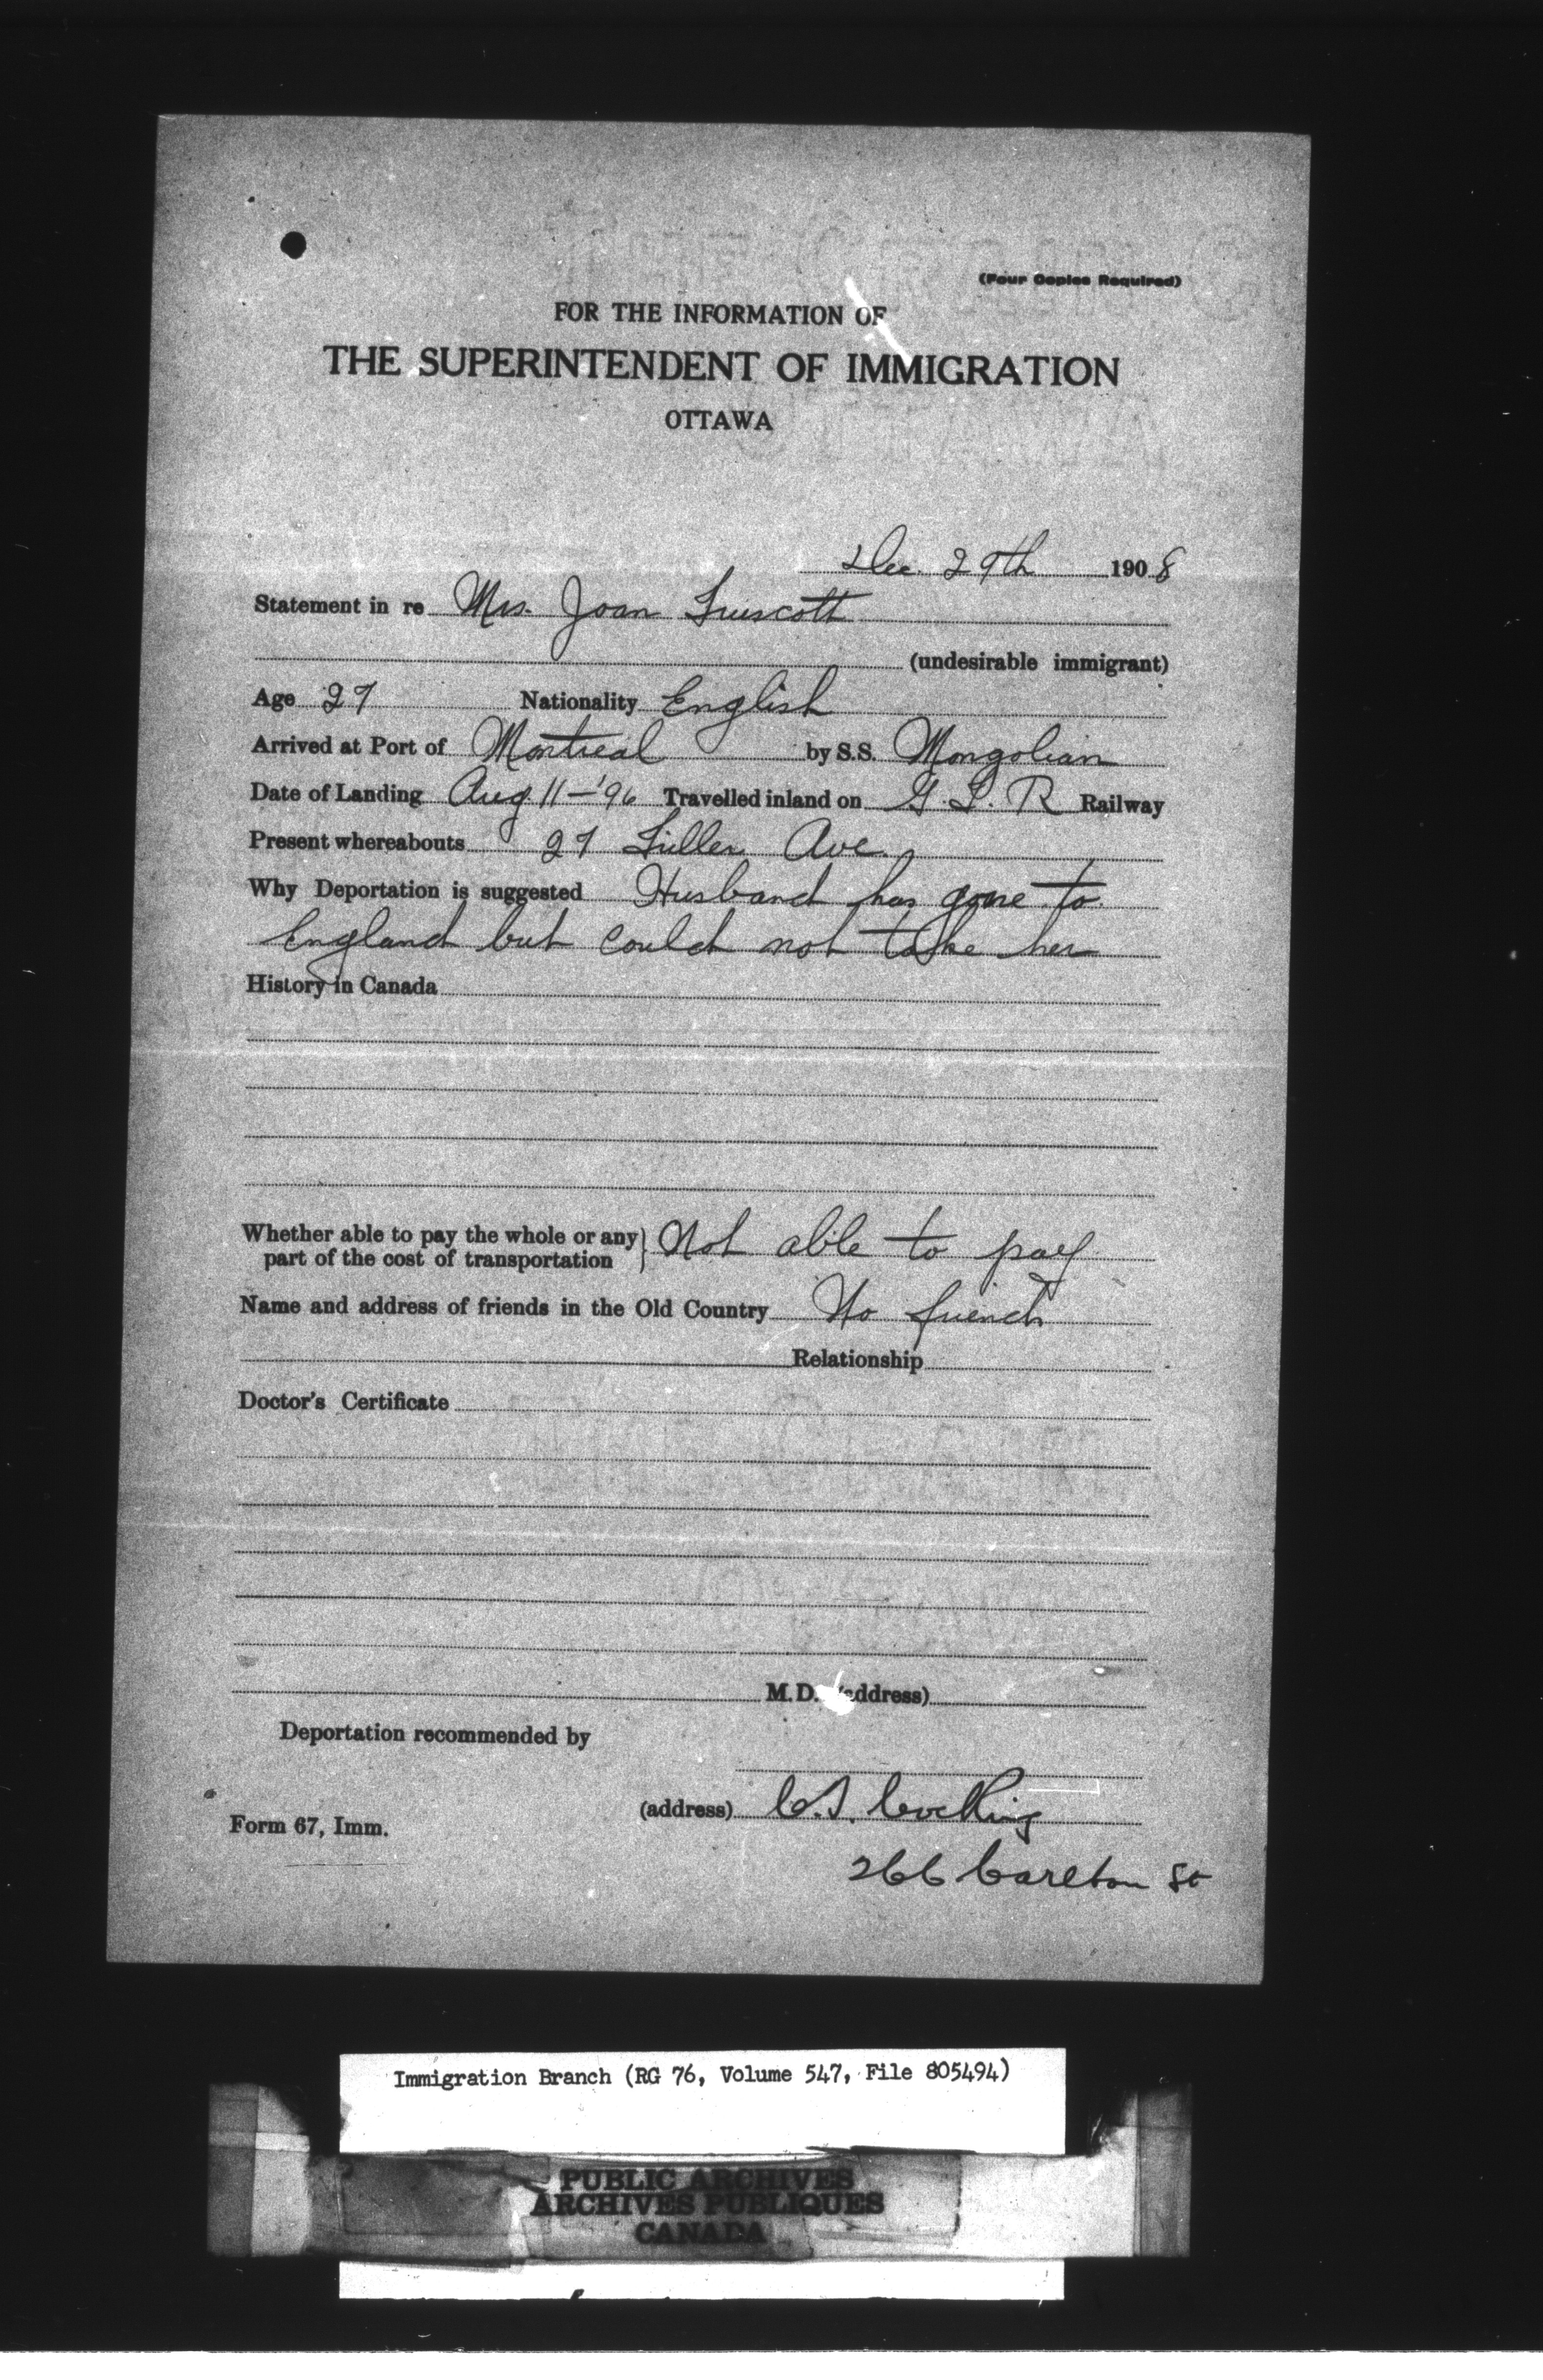 (Four Copies Required)
FOR THE INFORMATION OF
THE SUPERINTENDENT OF IMMIGRATION
OTTAWA
Dec. 29th 1908
Statement in re Mrs. Joan Truscott
(undesirable immigrant)
Age 27 Nationality English
Arrived at Port of Montreal by S.S. Mongolian
Date of Landing Aug 11-'96 Travelled inland on G. T. R Railway
Present whereabouts 27 Ave
Why Deportation is suggested Husband has gone to
England but could not take her
History in Canada
Whether able to pay the whole or any
part of the cost of transportation } Not able to pay
Name and address of friends in the Old Country No friends
Relationship
Doctor's Certificate
M.D. (address)
Deportation recommended by
(address) Cocking
Form 67, Imm.
266 Carlton St
Immigration Branch (RG 76, Volume 547, File 805494)
PUBLIC ARCHIVES
ARCHIVES PUBLIQUES
CANADA